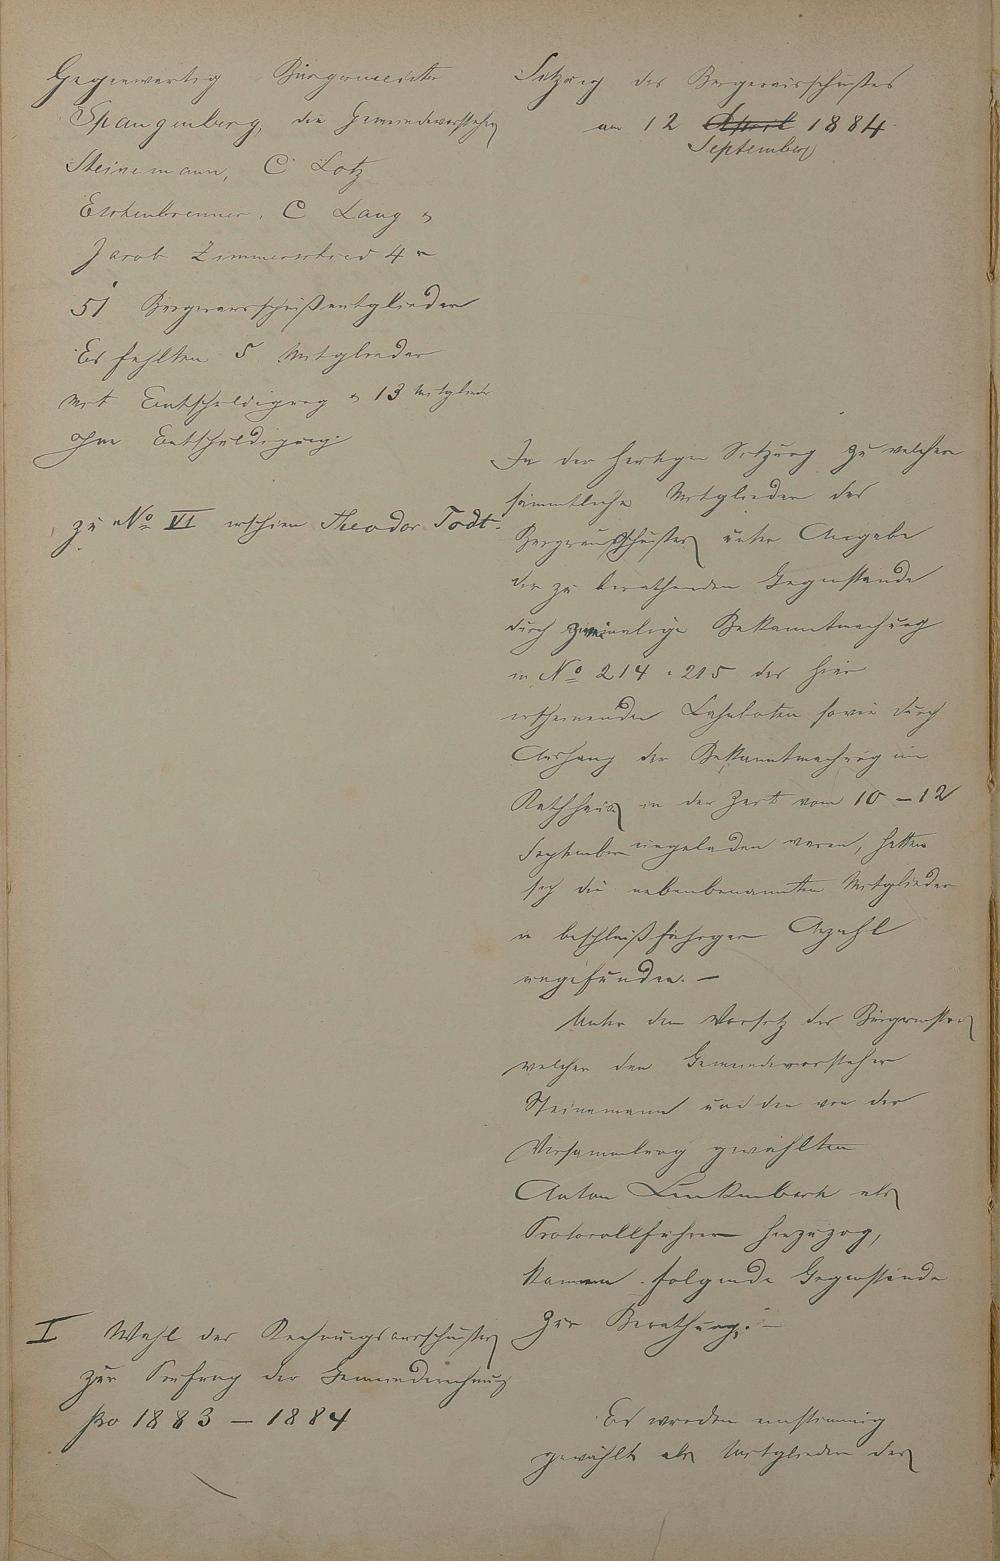 Gegenwärtig Bürgermeister
Spangenberg, die Gemeindevorsteher
Steinemann, C Lotz
Eschenbrenner, C Lang u
Jacob Zimmerschied 4r
51 Bürgerausschußmitglieder
Es fehlten 5 Mitglieder
mit Entschuldigung u 13 Mitglieder
ohne Entschuldigung
zu No VI erschien Theodor Todt.
I Wahl des Rechnungsausschusses
zur Prüfung der Gemeinderechnung
pro 1883 – 1884
Sitzung des Bürgerausschußes
am 12 April 1884
September
In der heutigen Sitzung zu welcher
sämmtliche Mitglieder des
Bürgerausschusses unter Angabe
der zu berathenden Gegenstände
durch zweimalige Bekanntmachung
in No 214 u 215 des hier
erscheinenden Lahnboten sowie durch
Aushang der Bekanntmachung im
Rathhaus in der Zeit vom 10 – 12
September eingeladen waren, hatten
sich die nebenbenannten Mitglieder
in beschlußfähiger Anzahl
eingefunden. –
Unter dem Vorsitz des Bürgermeisters
welcher den Gemeindevorsteher
Steinemann und den von der
Versammlung gewählten
Anton Linkenbach als
Protocollführer hinzuzog,
kamen folgende Gegenstände
zur Berathung: –
Es wurden einstimmig
gewählt als Mitglieder des